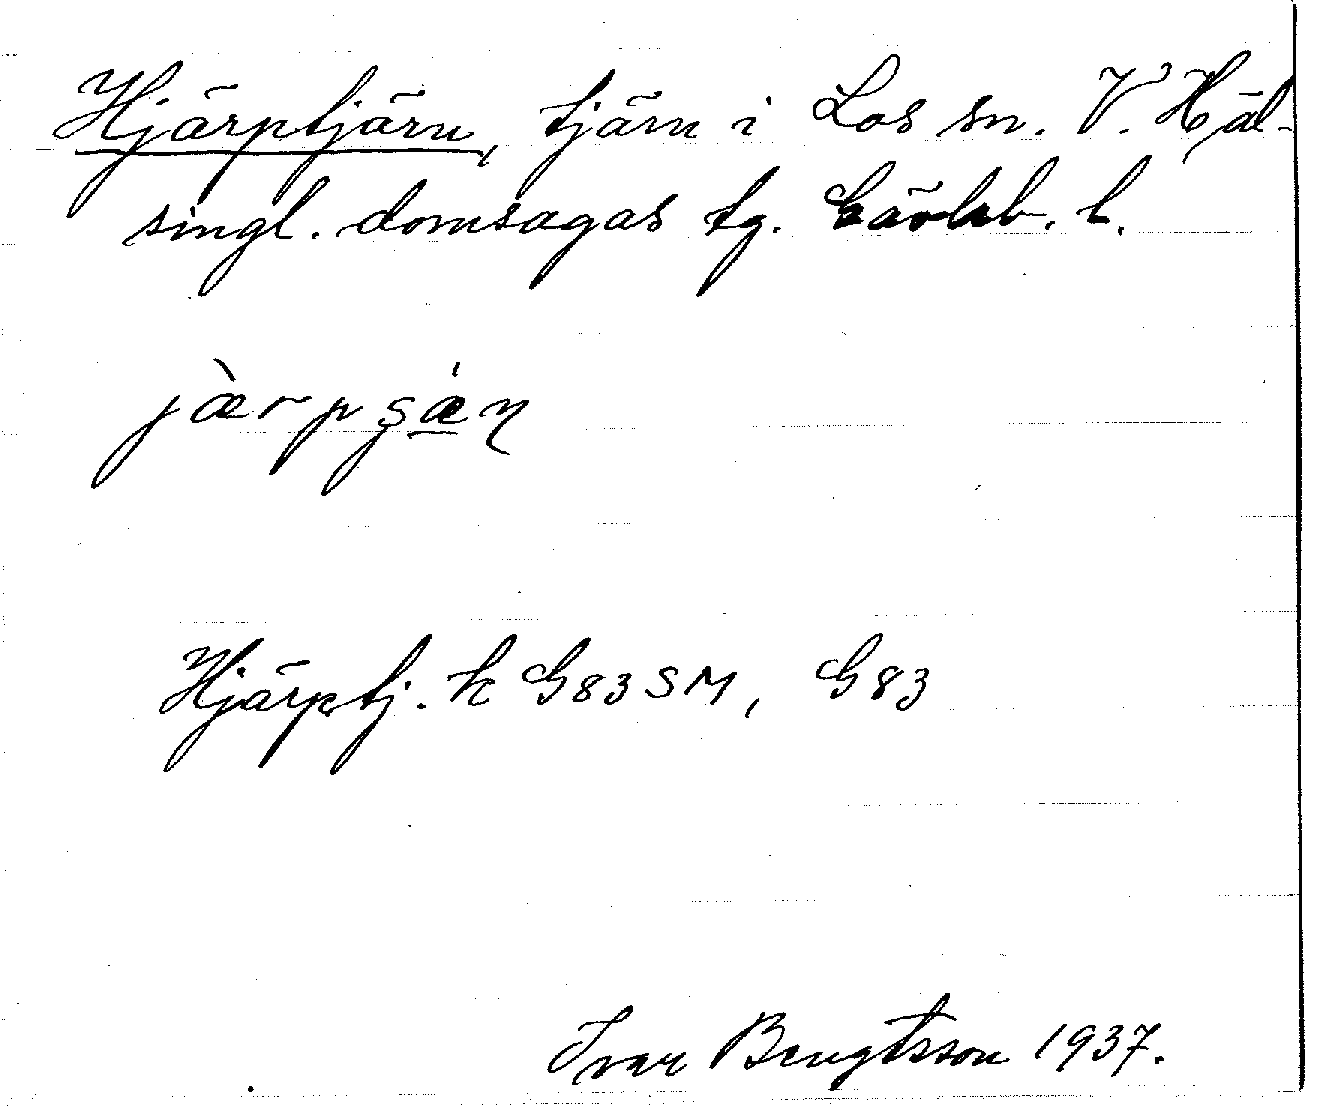 Hjärptjärn, tjärn i Los sn. V. Häl-
singl. domsagas tg. Gävleb. l.
jæ̀rpʂæ̇ɳ
Hjärptj. k G83SM, G83
Ivar Bengtsson 1937.